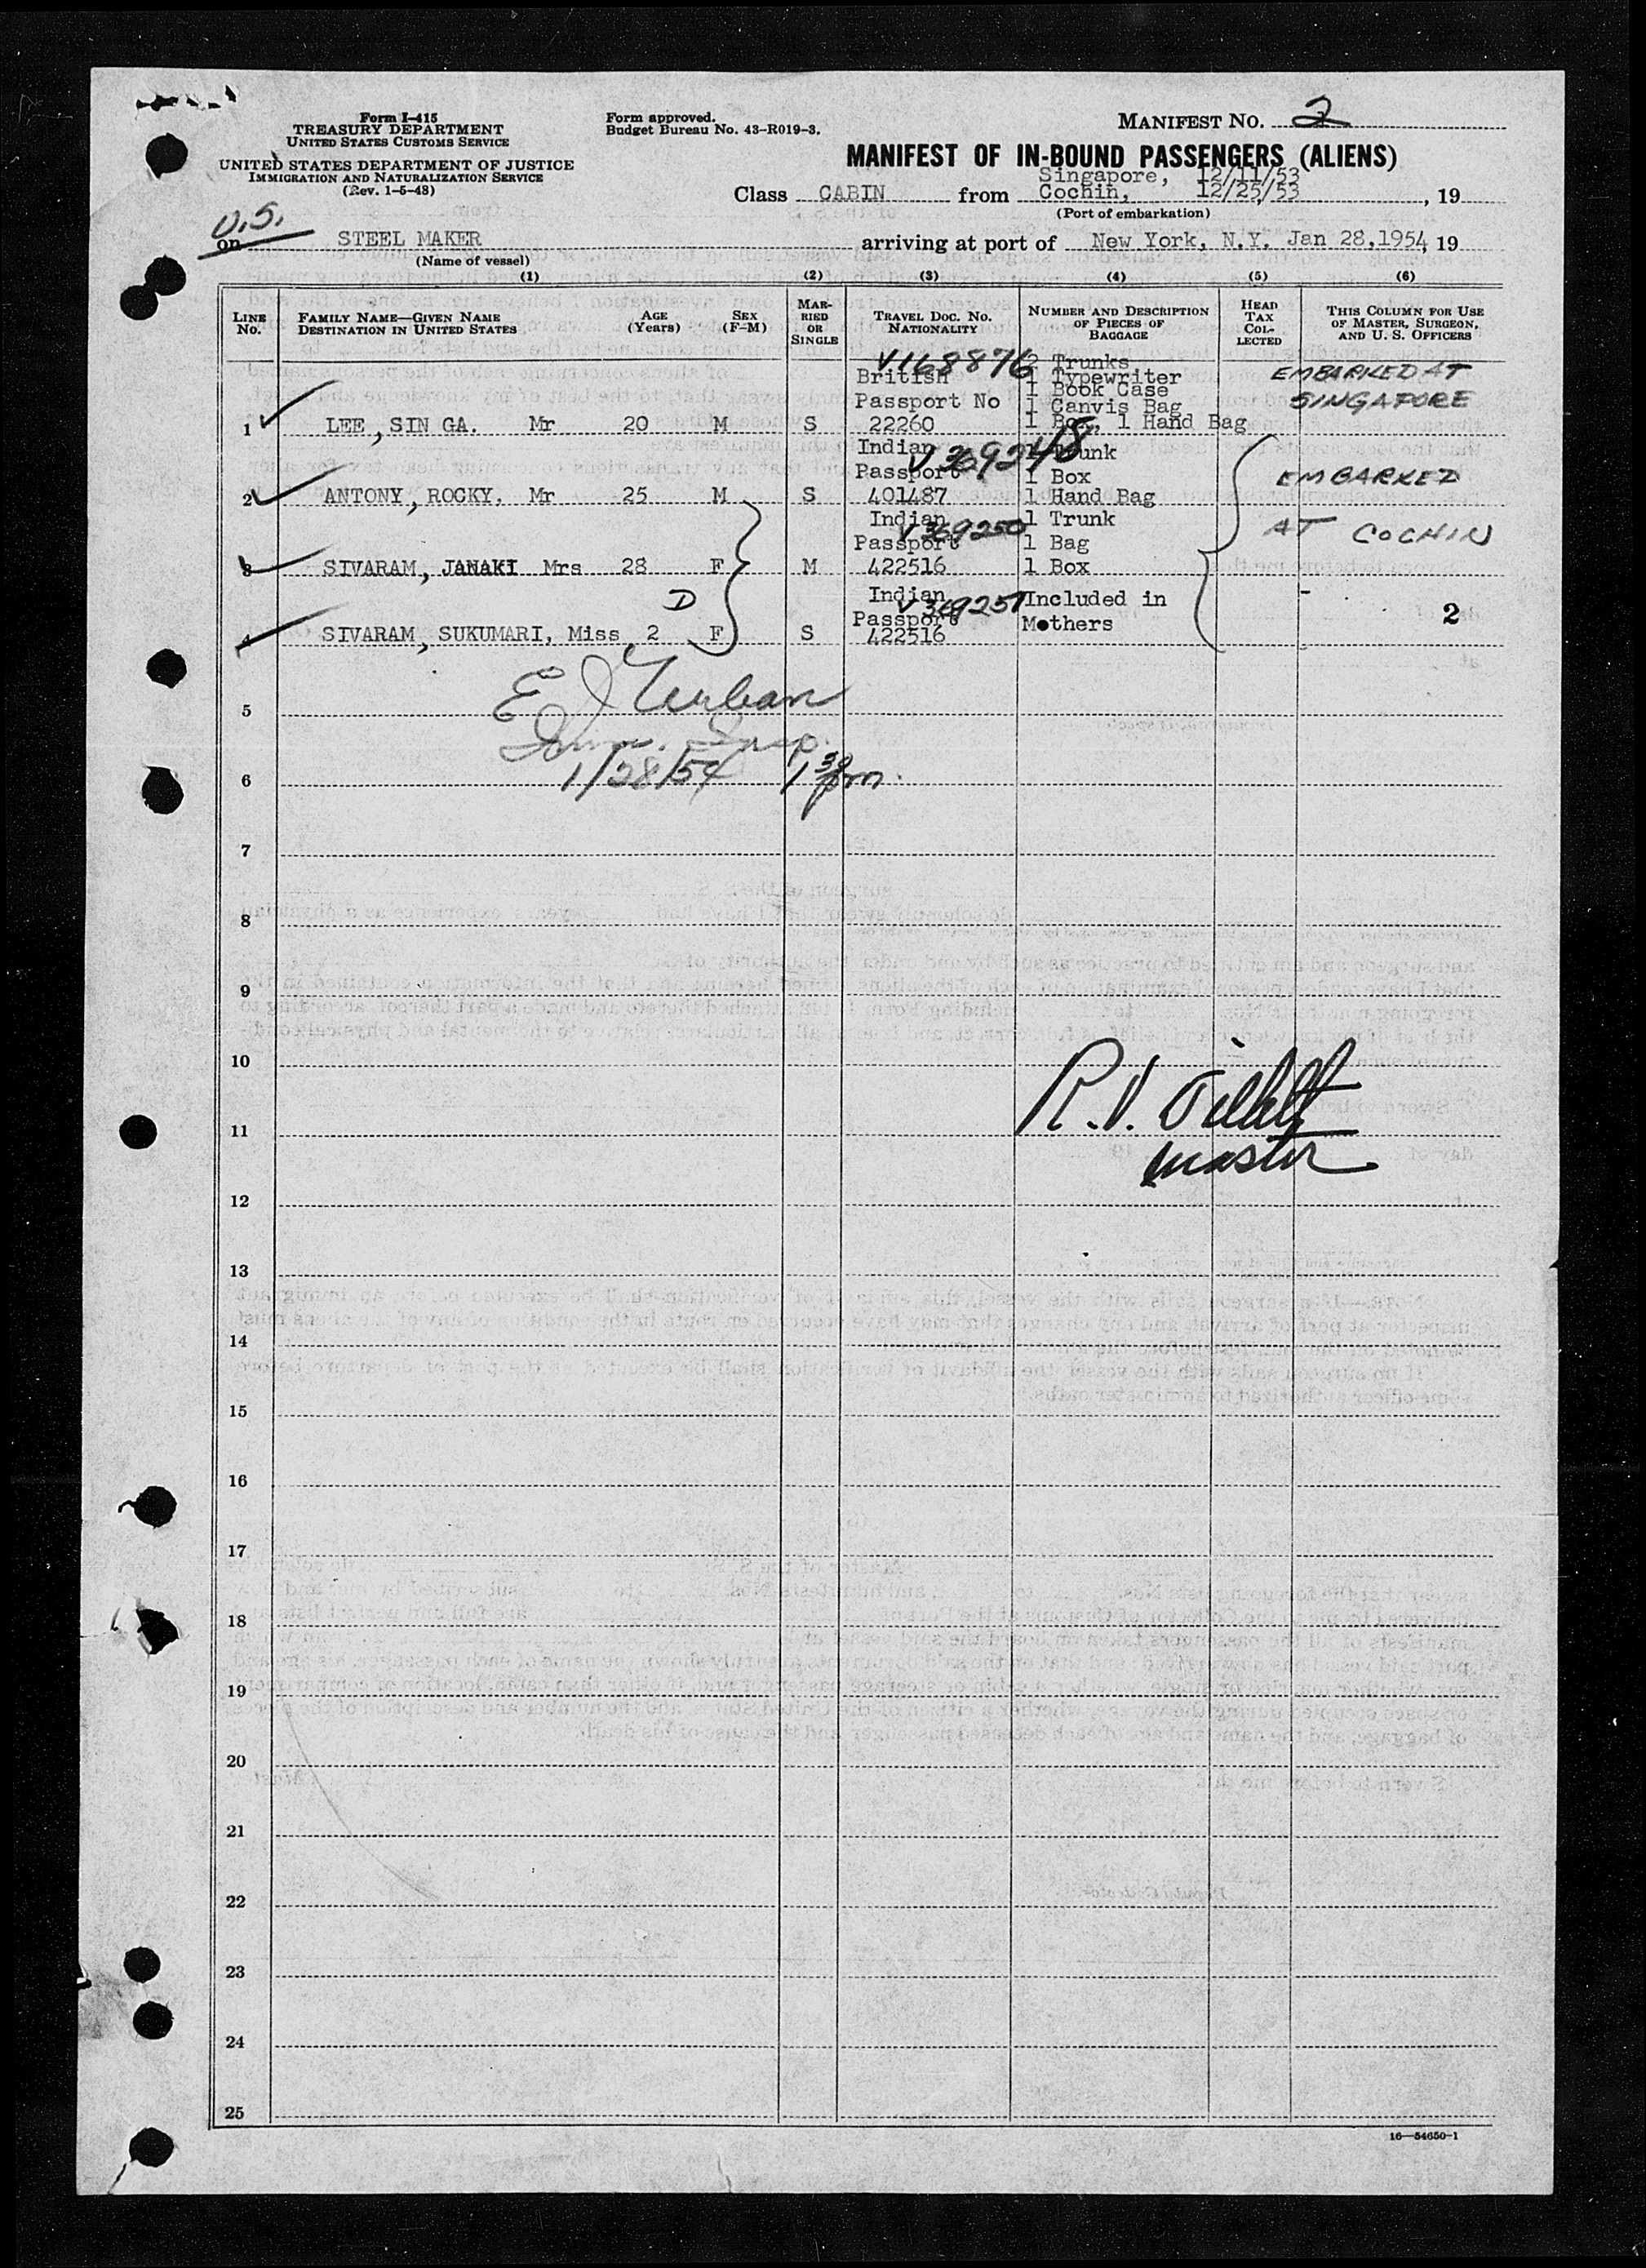 Form I-415
TREASURY DEPARTMENT
UNITED STATES CUSTOMS SERVICE
UNITED STATES DEPARTMENT OF JUSTICE
IMMIGRATION AND NATURALIZATION SERVICE
(Rev. 1-5-48)
Form approved.
Budget Bureau No. 43-R019-3.
MANIFEST NO. 2
MANIFEST OF IN-BOUND PASSENGERS (ALIENS)
Singapore, 12/11/53
Class CABIN from Cochin, 12/25/53, 19
(Port of embarkation)
U.S.
on STEEL MAKER arriving at port of New York, N.Y. Jan 28,1954, 19
(Name of vessel)
(1) (2) (3) (4) (5) (6)
LINE No. FAMILY NAME—GIVEN NAME DESTINATION IN UNITED STATES AGE (Years) SEX (F-M) MARRIED OR SINGLE TRAVEL DOC. NO. NATIONALITY NUMBER AND DESCRIPTION OF PIECES OF BAGGAGE HEAD TAX COLLECTED THIS COLUMN FOR USE OF MASTER, SURGEON, AND U. S. OFFICERS
V168876 2 Trunks
British 1 Typewriter EMBARKED AT
1 Book Case
Passport No 1 Canvis Bag SINGAPORE
1 LEE, SIN GA. Mr 20 M S 22260 1 Box, 1 Hand Bag
Indian V369248 Trunk
Passport 1 Box EMBARKED
2 ANTONY, ROCKY. Mr 25 M S 401487 1 Hand Bag
Indian V369250 1 Trunk AT COCHIN
Passport 1 Bag
3 SIVARAM, JANAKI Mrs 28 F M 422516 1 Box
D Indian V369251 Included in
Passport Mothers 2
4 SIVARAM, SUKUMARI, Miss 2 F S 422516
E J
5
Imm. Insp.
6 1/28/54 1 30 pm.
7
8
9
10
R.V.
11
master
12
13
14
15
16
17
18
19
20
21
22
23
24
25
16—54650-1